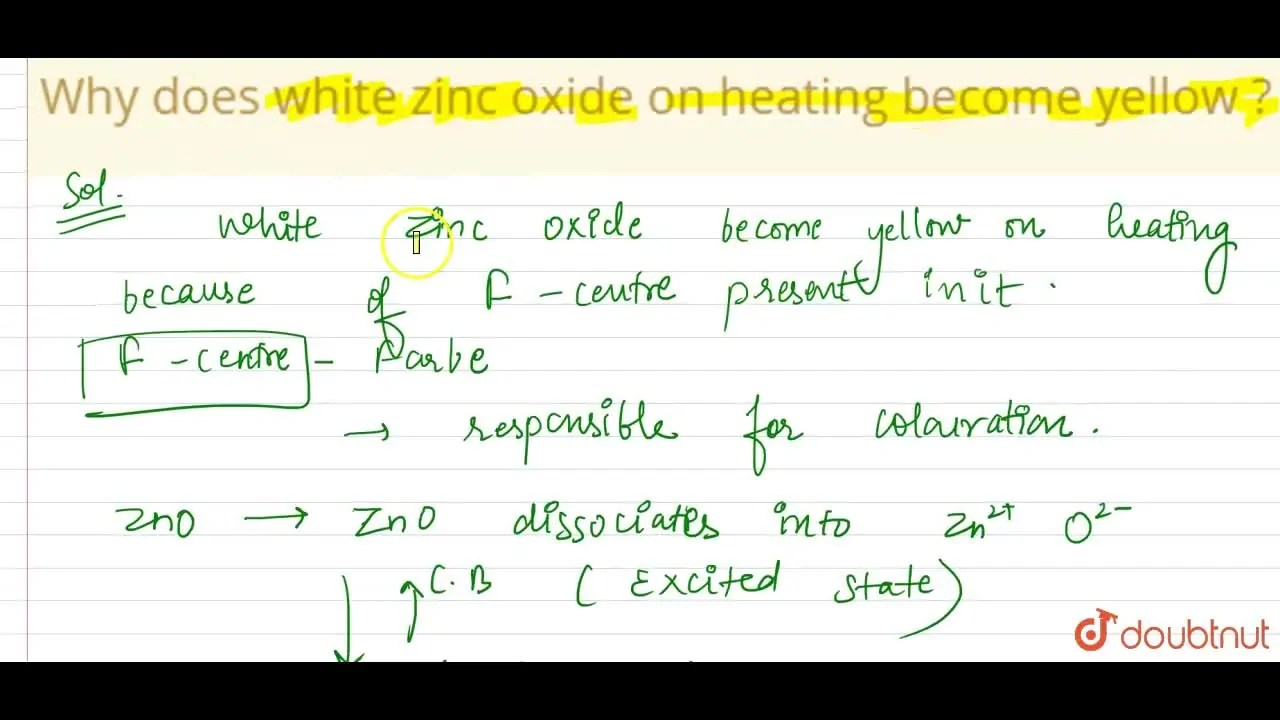 Why does white zinc oxide on heating become yellow ?
Sol.
White zinc oxide become yellow on heating
because of F-centre present in it.
F-centre - Farbe
→ responsible for colouration.
ZnO → ZnO dissociates into Zn²⁺ O²⁻
↓ ↑ C.B (Excited state)
doubtnut